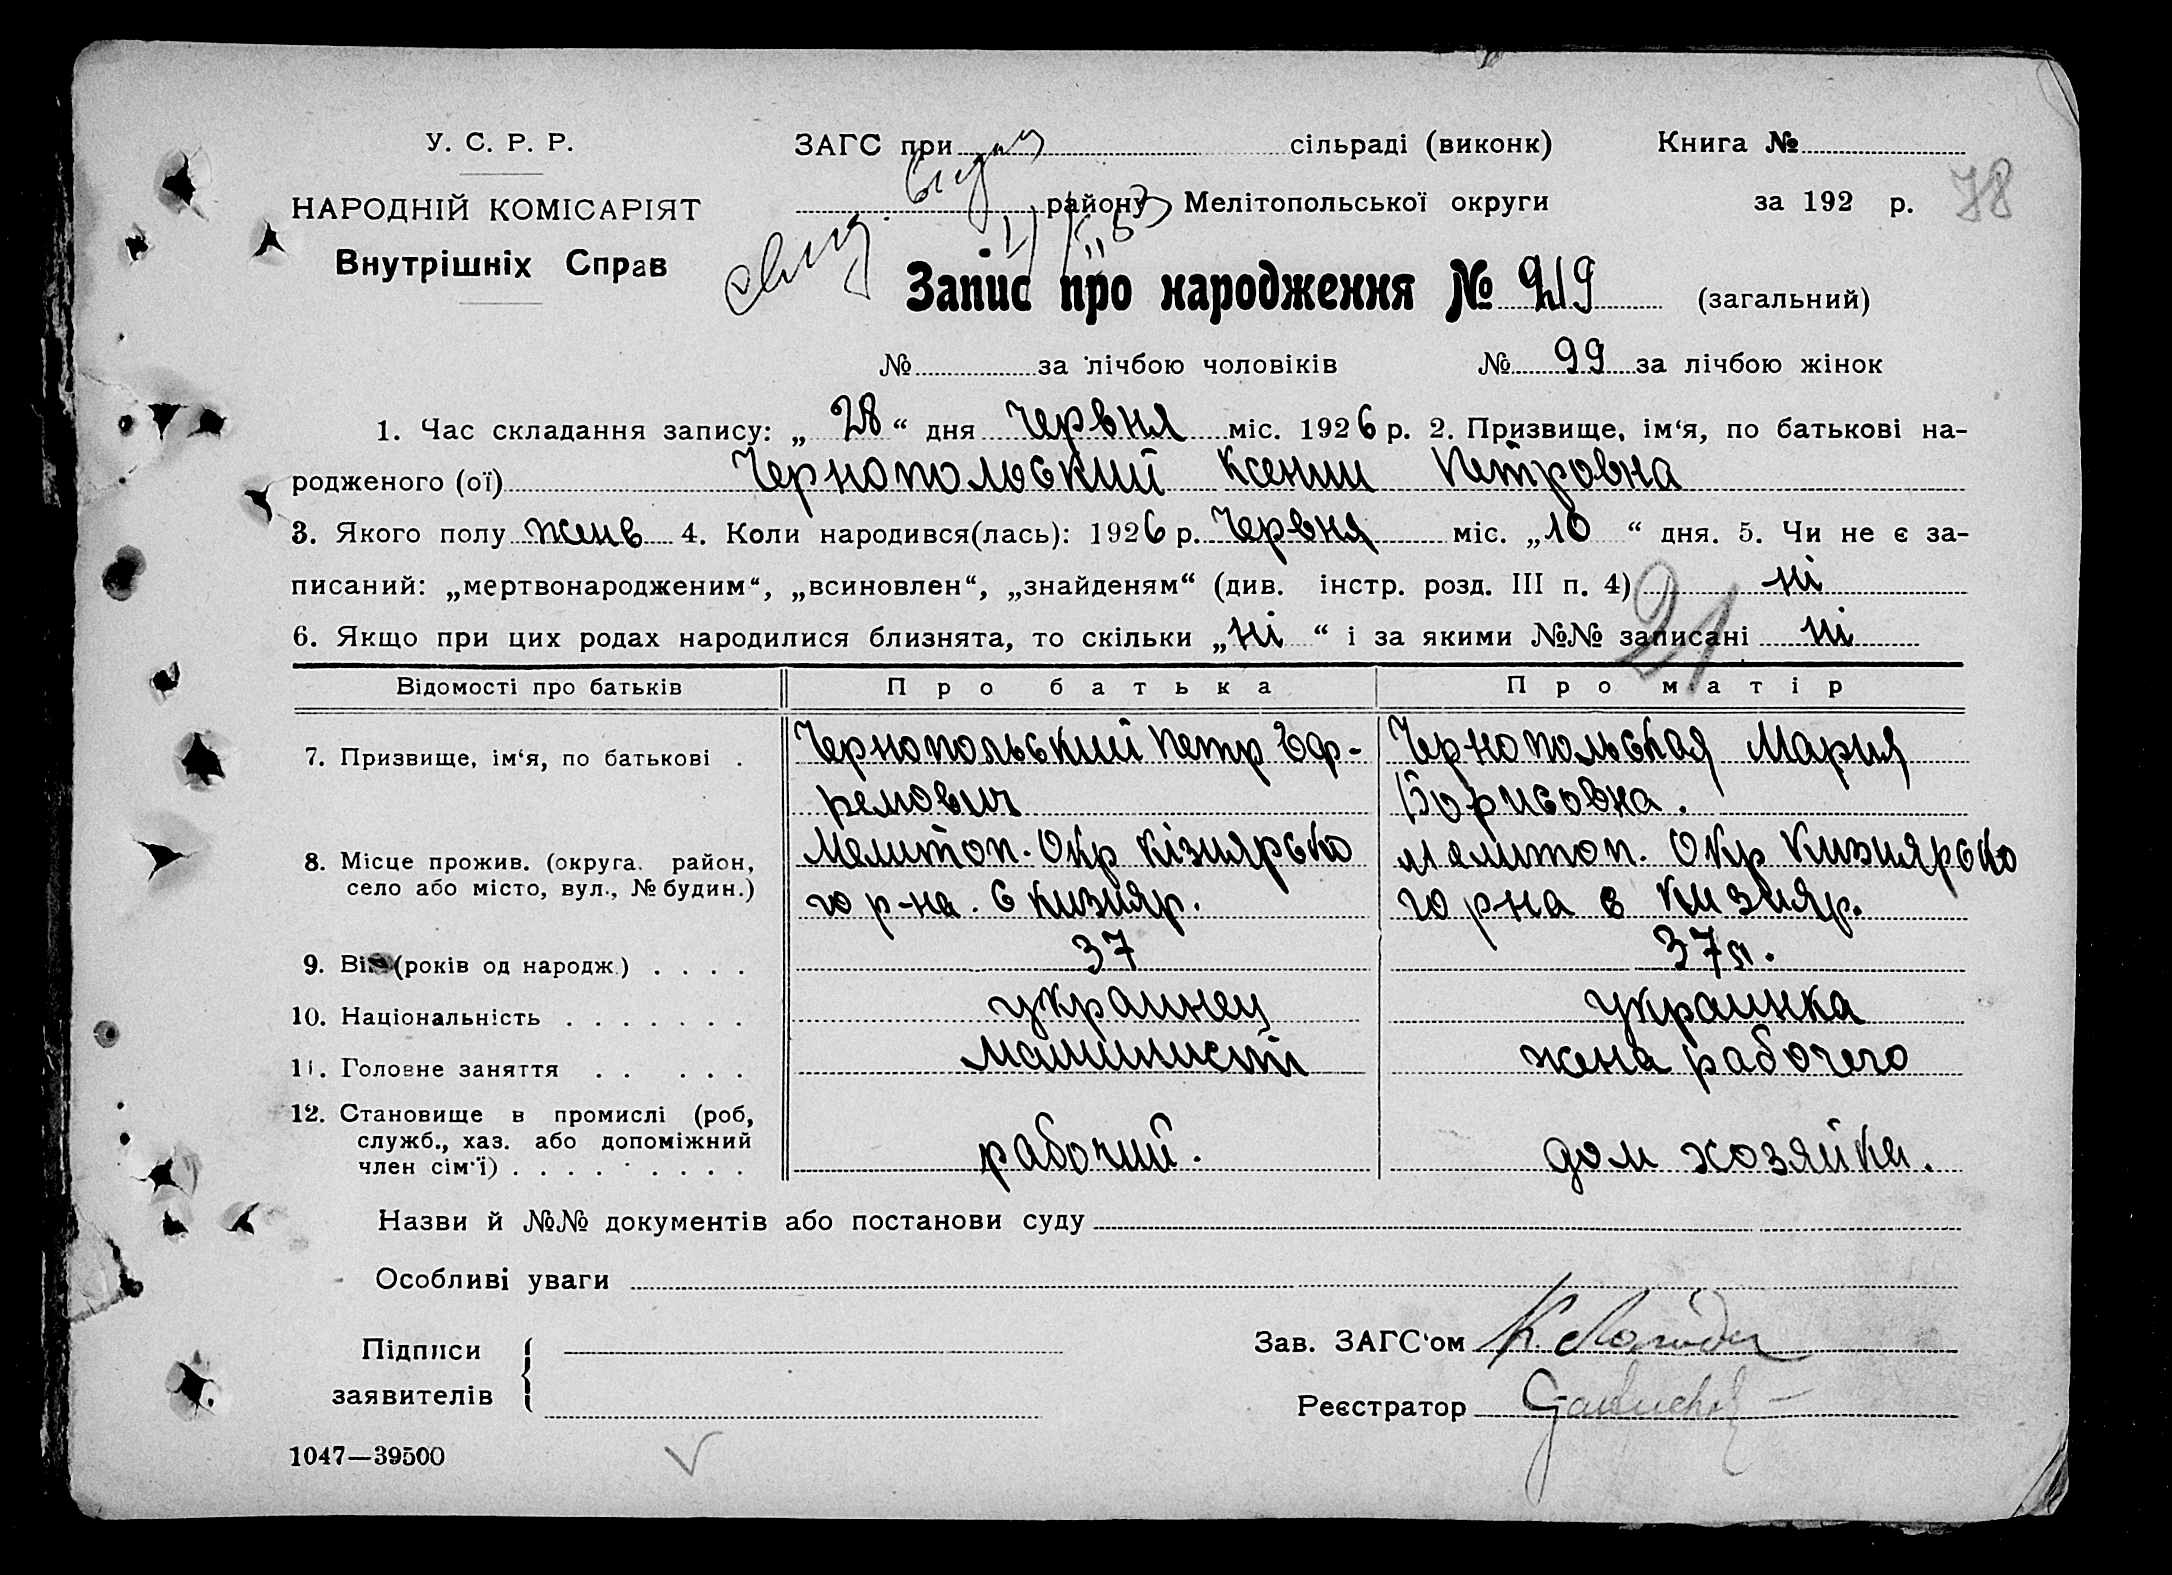 У. С. Р. Р.
НАРОДНІЙ КОМІСАРІЯТ
Внутрішніх Справ
ЗАГС при сільраді (виконк)
Книга №
району Мелітопольської округи
за 192 р. 78
Запис про народження № 919 (загальний)
№ за лічбою чоловіків № 99 за лічбою жінок
1. Час складання запису: „ 28 “ дня Червня міс. 1926 р. 2. Призвище, ім‘я, по батькові на-
родженого (ої) Чернопольский Ксении Петровна
3. Якого полу женв 4. Коли народився(лась): 1926 р. Червня міс. „10 “ дня. 5. Чи не є за-
писаний: „мертвонародженим“, „всиновлен“, „знайденям“ (див. інстр. розд. III п. 4) ні
21
6. Якщо при цих родах народилися близнята, то скільки „ні “ і за якими №№ записані ні
Відомості про батьків Про батька Про матір
7. Призвище, ім‘я, по батькові . Чернопольский Петр Еф-
ремович
Чернопольская Мария
Борисовна.
8. Місце прожив. (округа. район,
село або місто, вул., № будин.)
Мелитоп. Окр Кізиярско
го р-на. с Кизияр.
Мелитоп. Окр Кизиярско
го рна с Кизияр.
9. Вік (років од народж.) . . . . 37 37л.
10. Національність . . . . . . . украинец украинка
11. Головне заняття . . . . . машинист жена рабочего
12. Становище в промислі (роб,
служб., хаз. або допоміжний
член сім‘ї) . . . . . . . . . рабочий. дом хозяйка.
Назви й №№ документів або постанови суду
Особливі уваги
Підписи
заявителів
Зав. ЗАГС‘ом
Реєстратор
1047—39500